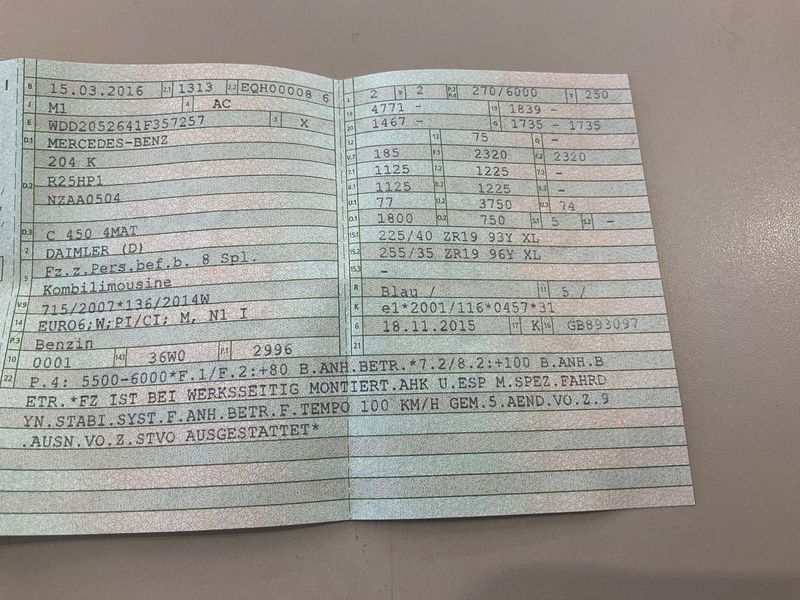 B 15.03.2016 2.1 1313 2.2 EQH00008 6
J M1 4 AC
E WDD2052641F357257 3 X
D.1 MERCEDES-BENZ
204 K
D.2 R25HP1
NZAA0504
D.3 C 450 4MAT
2 DAIMLER (D)
5 Fz.z.Pers.bef.b. 8 Spl.
Kombilimousine
V.9 715/2007*136/2014W
14 EURO6;W;PI/CI; M, N1 I
P.3 Benzin
10 0001 14.1 36W0 P.1 2996
L 2 9 2 P.2 P.4 270/6000 T 250
18 4771 - 19 1839 -
20 1467 - G 1735 - 1735
12 - 13 75 Q -
V.7 185 F.1 2320 F.2 2320
7.1 1125 7.2 1225 7.3 -
8.1 1125 8.2 1225 8.3 -
U.1 77 U.2 3750 U.3 74
O.1 1800 O.2 750 S.1 5 S.2 -
15.1 225/40 ZR19 93Y XL
15.2 255/35 ZR19 96Y XL
15.3 -
R Blau / 11 5 /
K e1*2001/116*0457*31
6 18.11.2015 17 K 16 GB893097
21
22 P.4: 5500-6000*F.1/F.2:+80 B.ANH.BETR.*7.2/8.2:+100 B.ANH.B
ETR.*FZ IST BEI WERKSSEITIG MONTIERT.AHK U.ESP M.SPEZ.FAHRD
YN.STABI.SYST.F.ANH.BETR.F.TEMPO 100 KM/H GEM.5.AEND.VO.Z.9
.AUSN.VO.Z.STVO AUSGESTATTET*